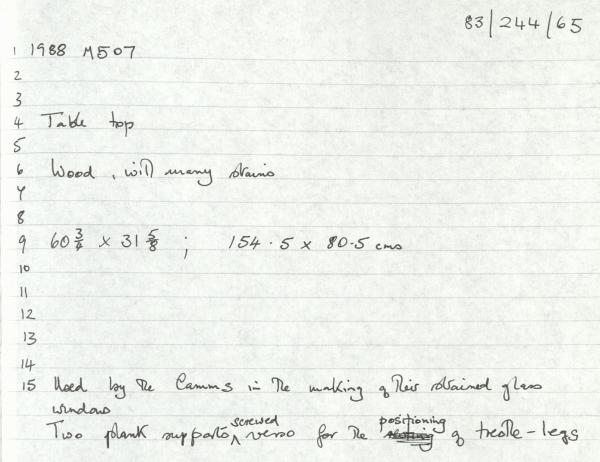 83/244/65
1 1988 M507
2
3
4 Table top
5
6 Wood, with many stains
7
8
9 60 3/4 x 31 5/8 ; 154.5 x 80.5 cms
10
11
12
13
14
15 Used by the Camms in the making of their stained glass
windows
Two plank supports screwed verso for the positioning of trestle-legs